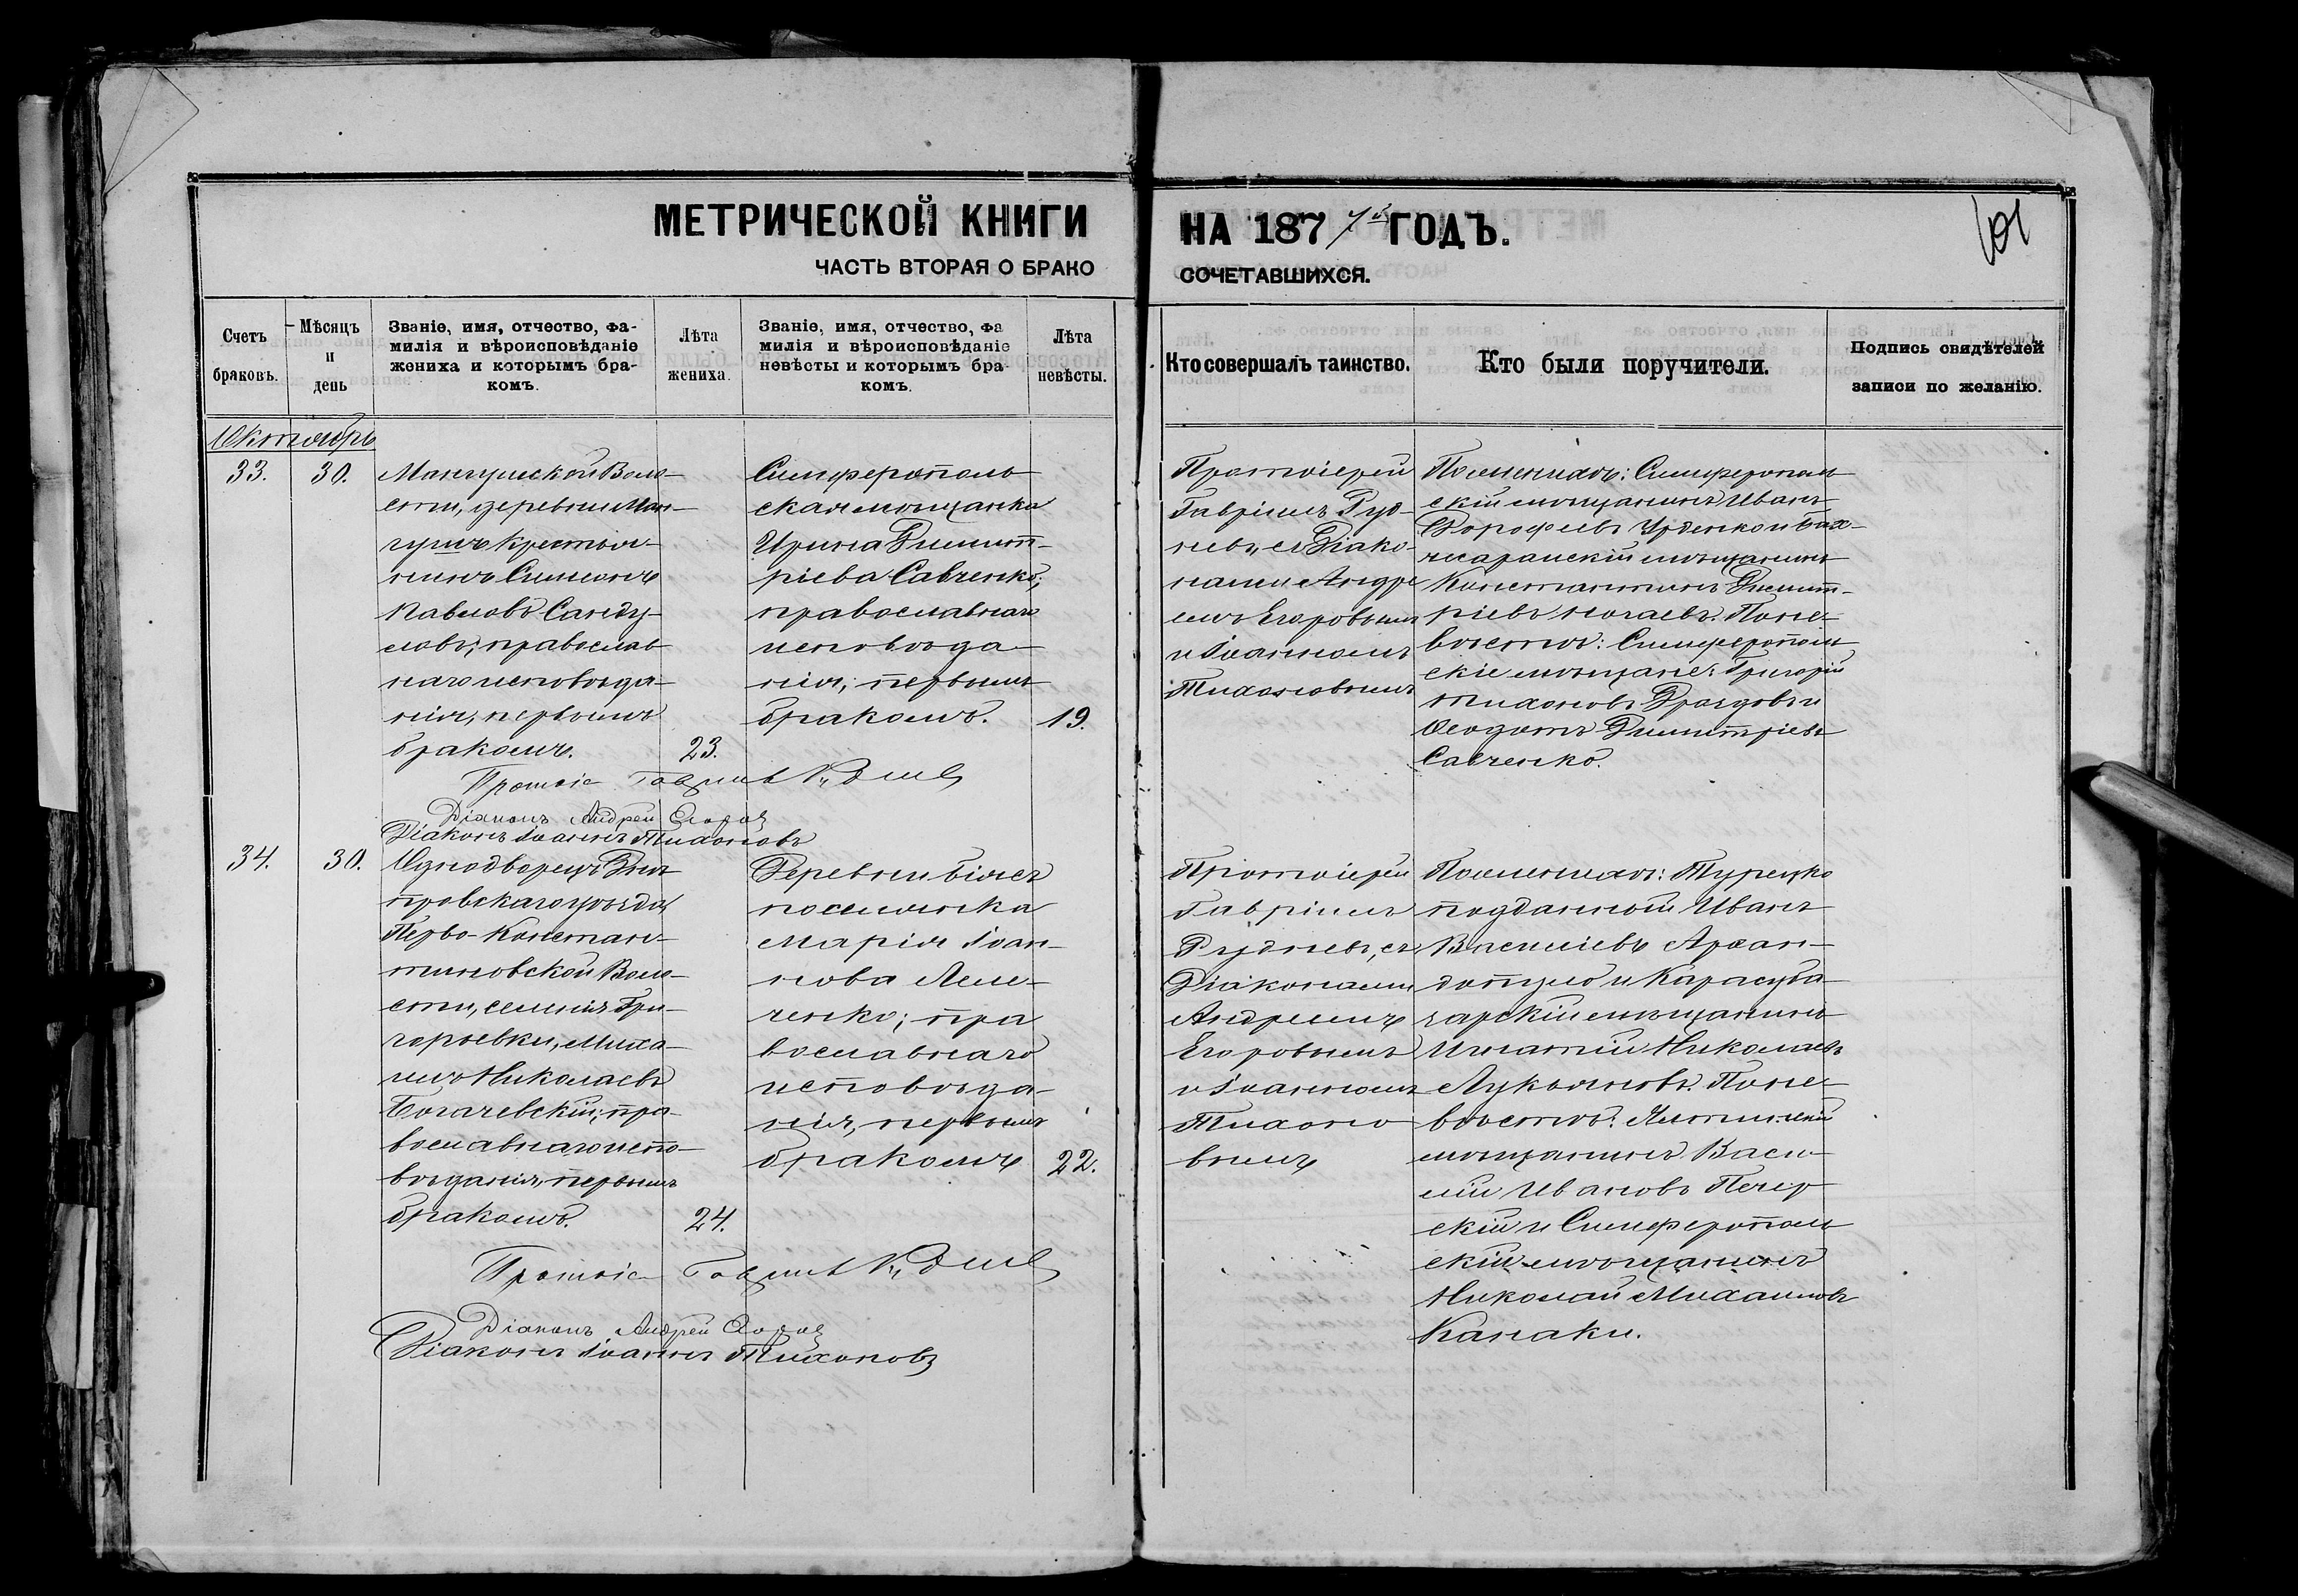 МЕТРИЧЕСКОЙ КНИГИ
НА 1877й ГОДЪ.
101
ЧАСТЬ ВТОРАЯ О БРАКО
СОЧЕТАВШИХСЯ.
Счетъ браковъ.
Мѣсяцъ и день
Званіе, имя, отчество, фа-
милія и вѣроисповѣданіе
жениха и которымъ бра-
комъ.
Лѣта жениха.
Званіе, имя, отчество, фа
милія и вѣроисповѣданіе
невѣсты и которымъ бра-
комъ.
Лѣта невѣсты.
Кто совершалъ таинство.
Кто были поручители.
Подпись свидѣтелей
записи по желанію.
Октябрь
33.
30.
Мангушской Воло-
сти, деревни Ман-
гушъ крестья-
нинъ Симеонъ
Павловъ Санду-
ловъ; православ
наго исповѣда-
нія, первымъ
бракомъ.
23.
Симферополь
ская мѣщанка
Ирина Димит-
ріева Савченко;
православнаго
исповѣда-
нія; первымъ
бракомъ.
19.
Протоіерей
Гавріилъ Руд-
невъ, съ Діако-
нами Андре
емъ Егоровымъ
и Іоанномъ
Тихоновымъ
По женихѣ: Симферополь
скій мѣщанинъ Иванъ
Дорофеевъ и Бах-
чисарайскій мѣщанинъ
Константинъ Димит-
ріевъ Ногаевъ. По не-
вѣстѣ: Симферополь
скіе мѣщане: Григорій
Тихоновъ Дроздовъ и
Феодотъ Димитріевъ
Савченко.
Протоіе Гавріилъ Рудневъ
Діаконъ Андрей Егоровъ
Діаконъ Іоаннъ Тихоновъ
34.
30.
Однодворецъ Днѣ
провскаго уѣзда
Перво-Констан-
тиновской Воло-
сти, селенія Гри-
горьевки, Миха-
илъ Николаевъ
Богачевскій; пра-
вославнаго испо-
вѣданія, первымъ
бракомъ.
24.
Деревни Біясъ
поселянка
Марія Іоан-
нова Леме-
ченко; пра
вославнаго
исповѣда-
нія, первымъ
бракомъ
22.
Протоіерей
Гавріилъ
Рудневъ, съ
Діаконами
Андреемъ
Егоровымъ
и Іоанномъ
Тихоно
вымъ
По женихѣ: Турецко
подданный Иванъ
Василіевъ Архан-
допуло и Карасуба-
зарскій мѣщанинъ
Игнатій Николаевъ
Лукьяновъ. По не-
вѣстѣ: Ялтинскій
мѣщанинъ Васи-
лій Ивановъ Печер
скій и Симферополь
скій мѣщанинъ
Николай Михаиловъ
Канаки.
Протоіе Гавріилъ Рудневъ
Діаконъ Андрей Егоровъ
Діаконъ Іоаннъ Тихоновъ